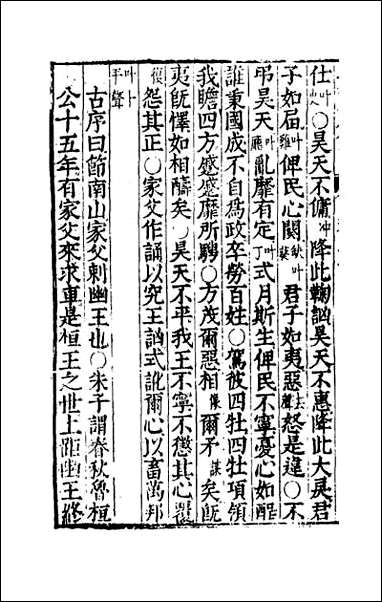 仕叶○昊天不傭冲降此鞠訩昊天不惠降此大戾君
子如屆俾民心闋君子如夷惡怒是違○不
弔昊天亂靡有定丁式月斯生俾民不寧憂心如酲
誰秉國成不自爲政卒勞百姓○駕彼四牡四牡項領
我瞻四方蹙蹙靡所騁○方茂爾惡相爾矛矣旣
夷旣懌如相醻矣○昊天不平我王不寧不懲其心覆
怨其正○家父作誦以究王訩式訛爾心以畜萬邦
平聲
古序曰節南山家父刺幽王也○朱子謂春秋魯桓
公十五年有家父來求車是桓王之世上距幽王終